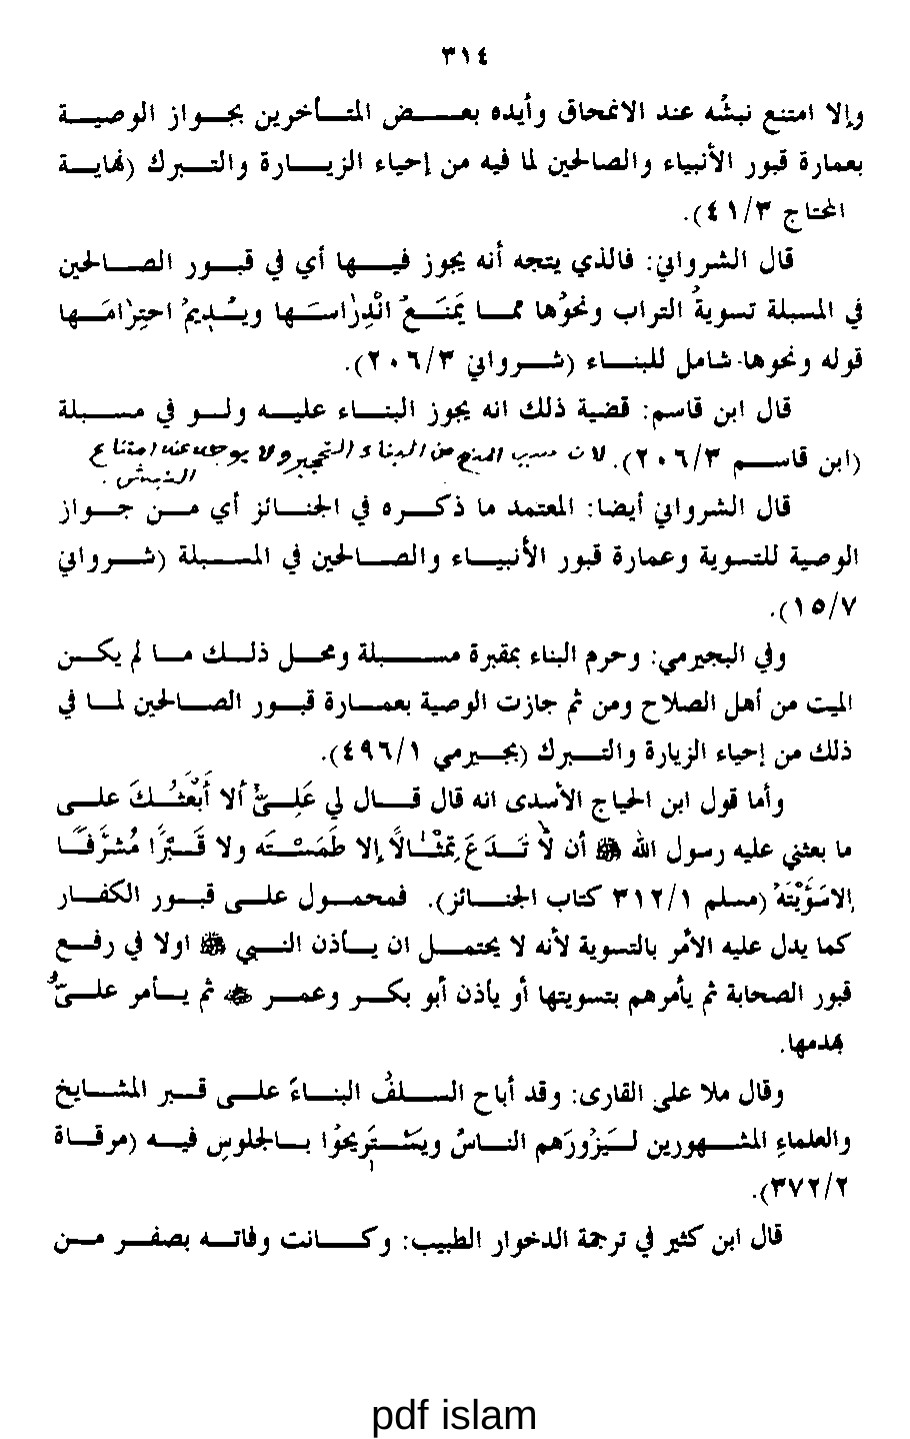 ٣١٤
وإلا امتنع نبشُه عند الانمحاق وأيده بعض المتأخرين بجواز الوصية
بعمارة قبور الأنبياء والصالحين لما فيه من إحياء الزيارة والتبرك (نهاية
المحتاج ٤١/٣).
قال الشرواني: فالذي يتجه أنه يجوز فيها أي في قبور الصالحين
في المسبلة تسويةُ التراب ونحوُها مما يَمنَعُ انْدِرَاسَها ويُدِيمُ احتِرَامَها
قوله ونحوها شامل للبناء (شرواني ٢٠٦/٣).
قال ابن قاسم: قضية ذلك انه يجوز البناء عليه ولو في مسبلة
(ابن قاسم ٢٠٦/٣). لان سبب المنع من البناء التحجير ولا يوجد عند امتناع
النبش.
قال الشرواني أيضا: المعتمد ما ذكره في الجنائز أي من جواز
الوصية للتسوية وعمارة قبور الأنبياء والصالحين في المسبلة (شرواني
١٥/٧).
وفي البجيرمي: وحرم البناء بمقبرة مسبلة ومحل ذلك ما لم يكن
الميت من أهل الصلاح ومن ثم جازت الوصية بعمارة قبور الصالحين لما في
ذلك من إحياء الزيارة والتبرك (بجيرمي ٤٩٦/١).
وأما قول ابن الحياج الأسدى انه قال قال لي عَلِيٌّ ألا أَبْعَثُكَ على
ما بعثني عليه رسول الله ﷺ أن لَّا تَدَعَ تِمْثَالًا إلا طَمَسْتَه ولا قَبْرًا مُشرَّفًا
إلا سَوَّيْتَه (مسلم ٣١٢/١ كتاب الجنائز). فمحمول على قبور الكفار
كما يدل عليه الأمر بالتسوية لأنه لا يحتمل ان يأذن النبي ﷺ اولا في رفع
قبور الصحابة ثم يأمرهم بتسويتها أو يأذن أبو بكر وعمر ﷺ ثم يأمر علىّ
بهدمها.
وقال ملا على القارى: وقد أباح السلفُ البناءَ على قبر المشايخ
والعلماءِ المشهورين لِيَزُورَهم الناسُ ويَسْتَرِيحُوا بالجلوسِ فيه (مرقاة
٣٧٢/٢).
قال ابن كثير في ترجمة الدخوار الطبيب: وكانت وفاته بصفر من
pdf islam